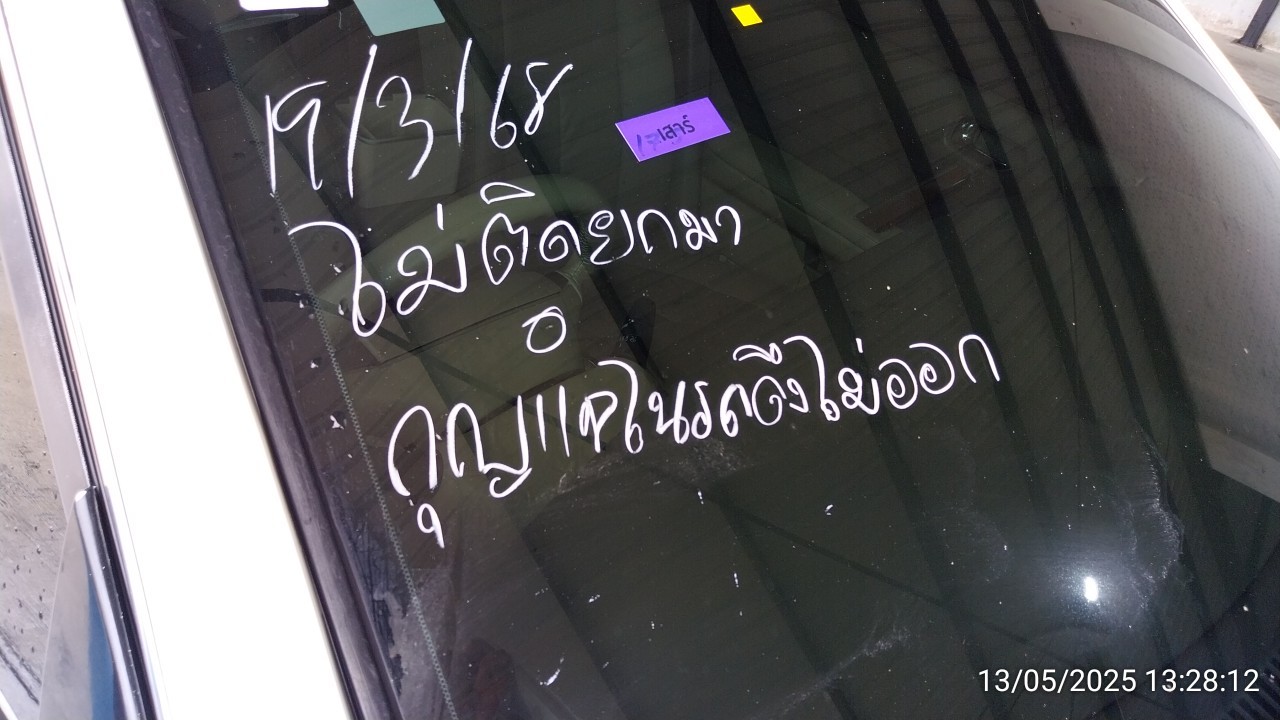 19/3/68
เสาร์
ไม่ติดยกมา
0
กุญแคในรถดึงไม่ออก
13/05/2025 13:28:12